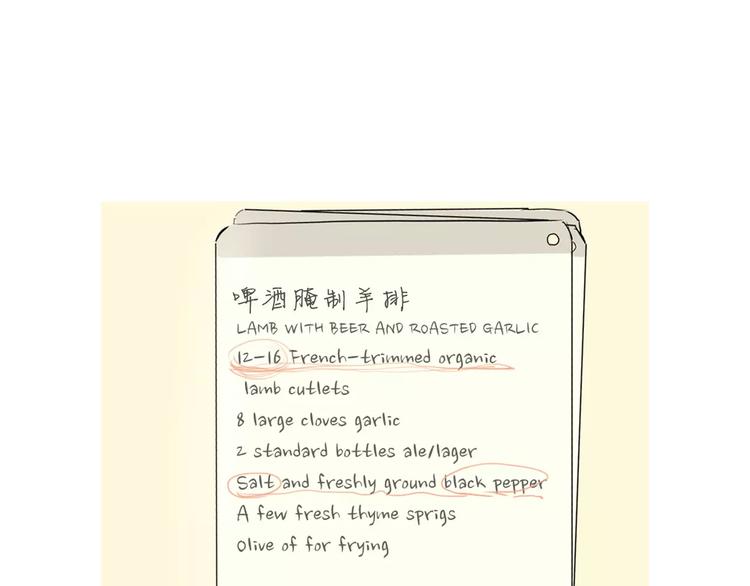 啤酒腌制羊排
LAMB WITH BEER AND ROASTED GARLIC
12-16 French-trimmed organic
lamb cutlets
8 large cloves garlic
2 standard bottles ale/lager
Salt and freshly ground black pepper
A few fresh thyme sprigs
Olive of for frying